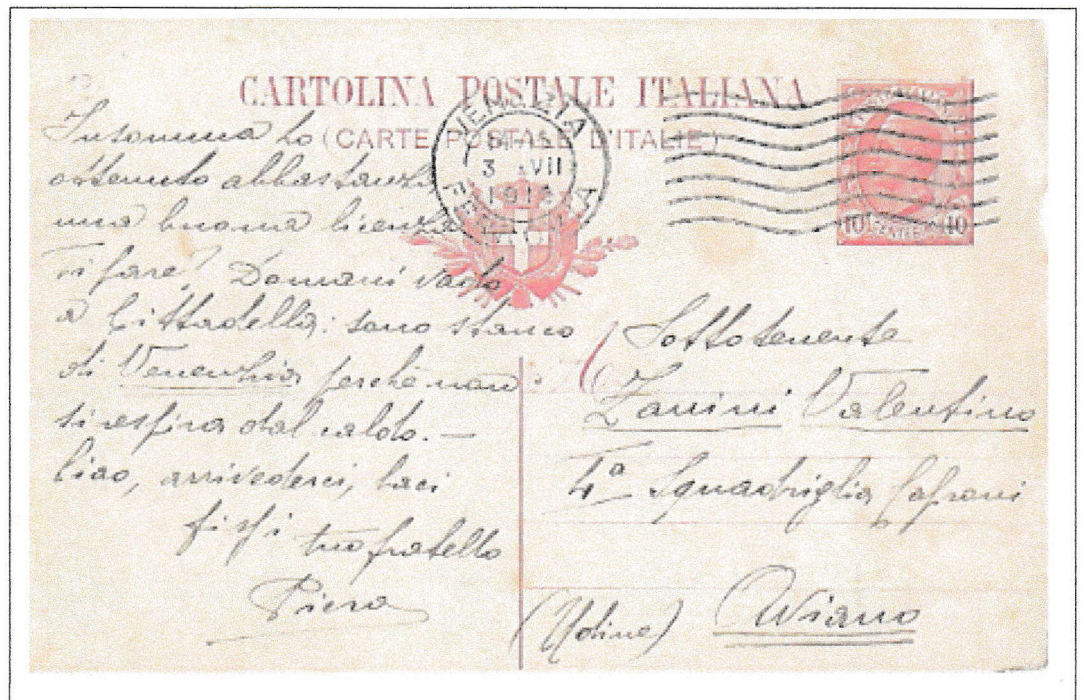 CARTOLINA POSTALE ITALIANA
(CARTE POSTALE D'ITALIE)
VENEZIA
3 VII
FERROVIA
10 CENTESIMI 10
Insomma ho
ottenuto abbastanza
una buona licenza
Domani vado
a Cittadella: sono stanco
di Venezhia perché non
si respira dal caldo. —
Ciao, arrivederci, baci
tuo fratello
Piero
Sottotenente
Zanini Valentino
4ª Squadriglia Caproni
(Udine) Aviano